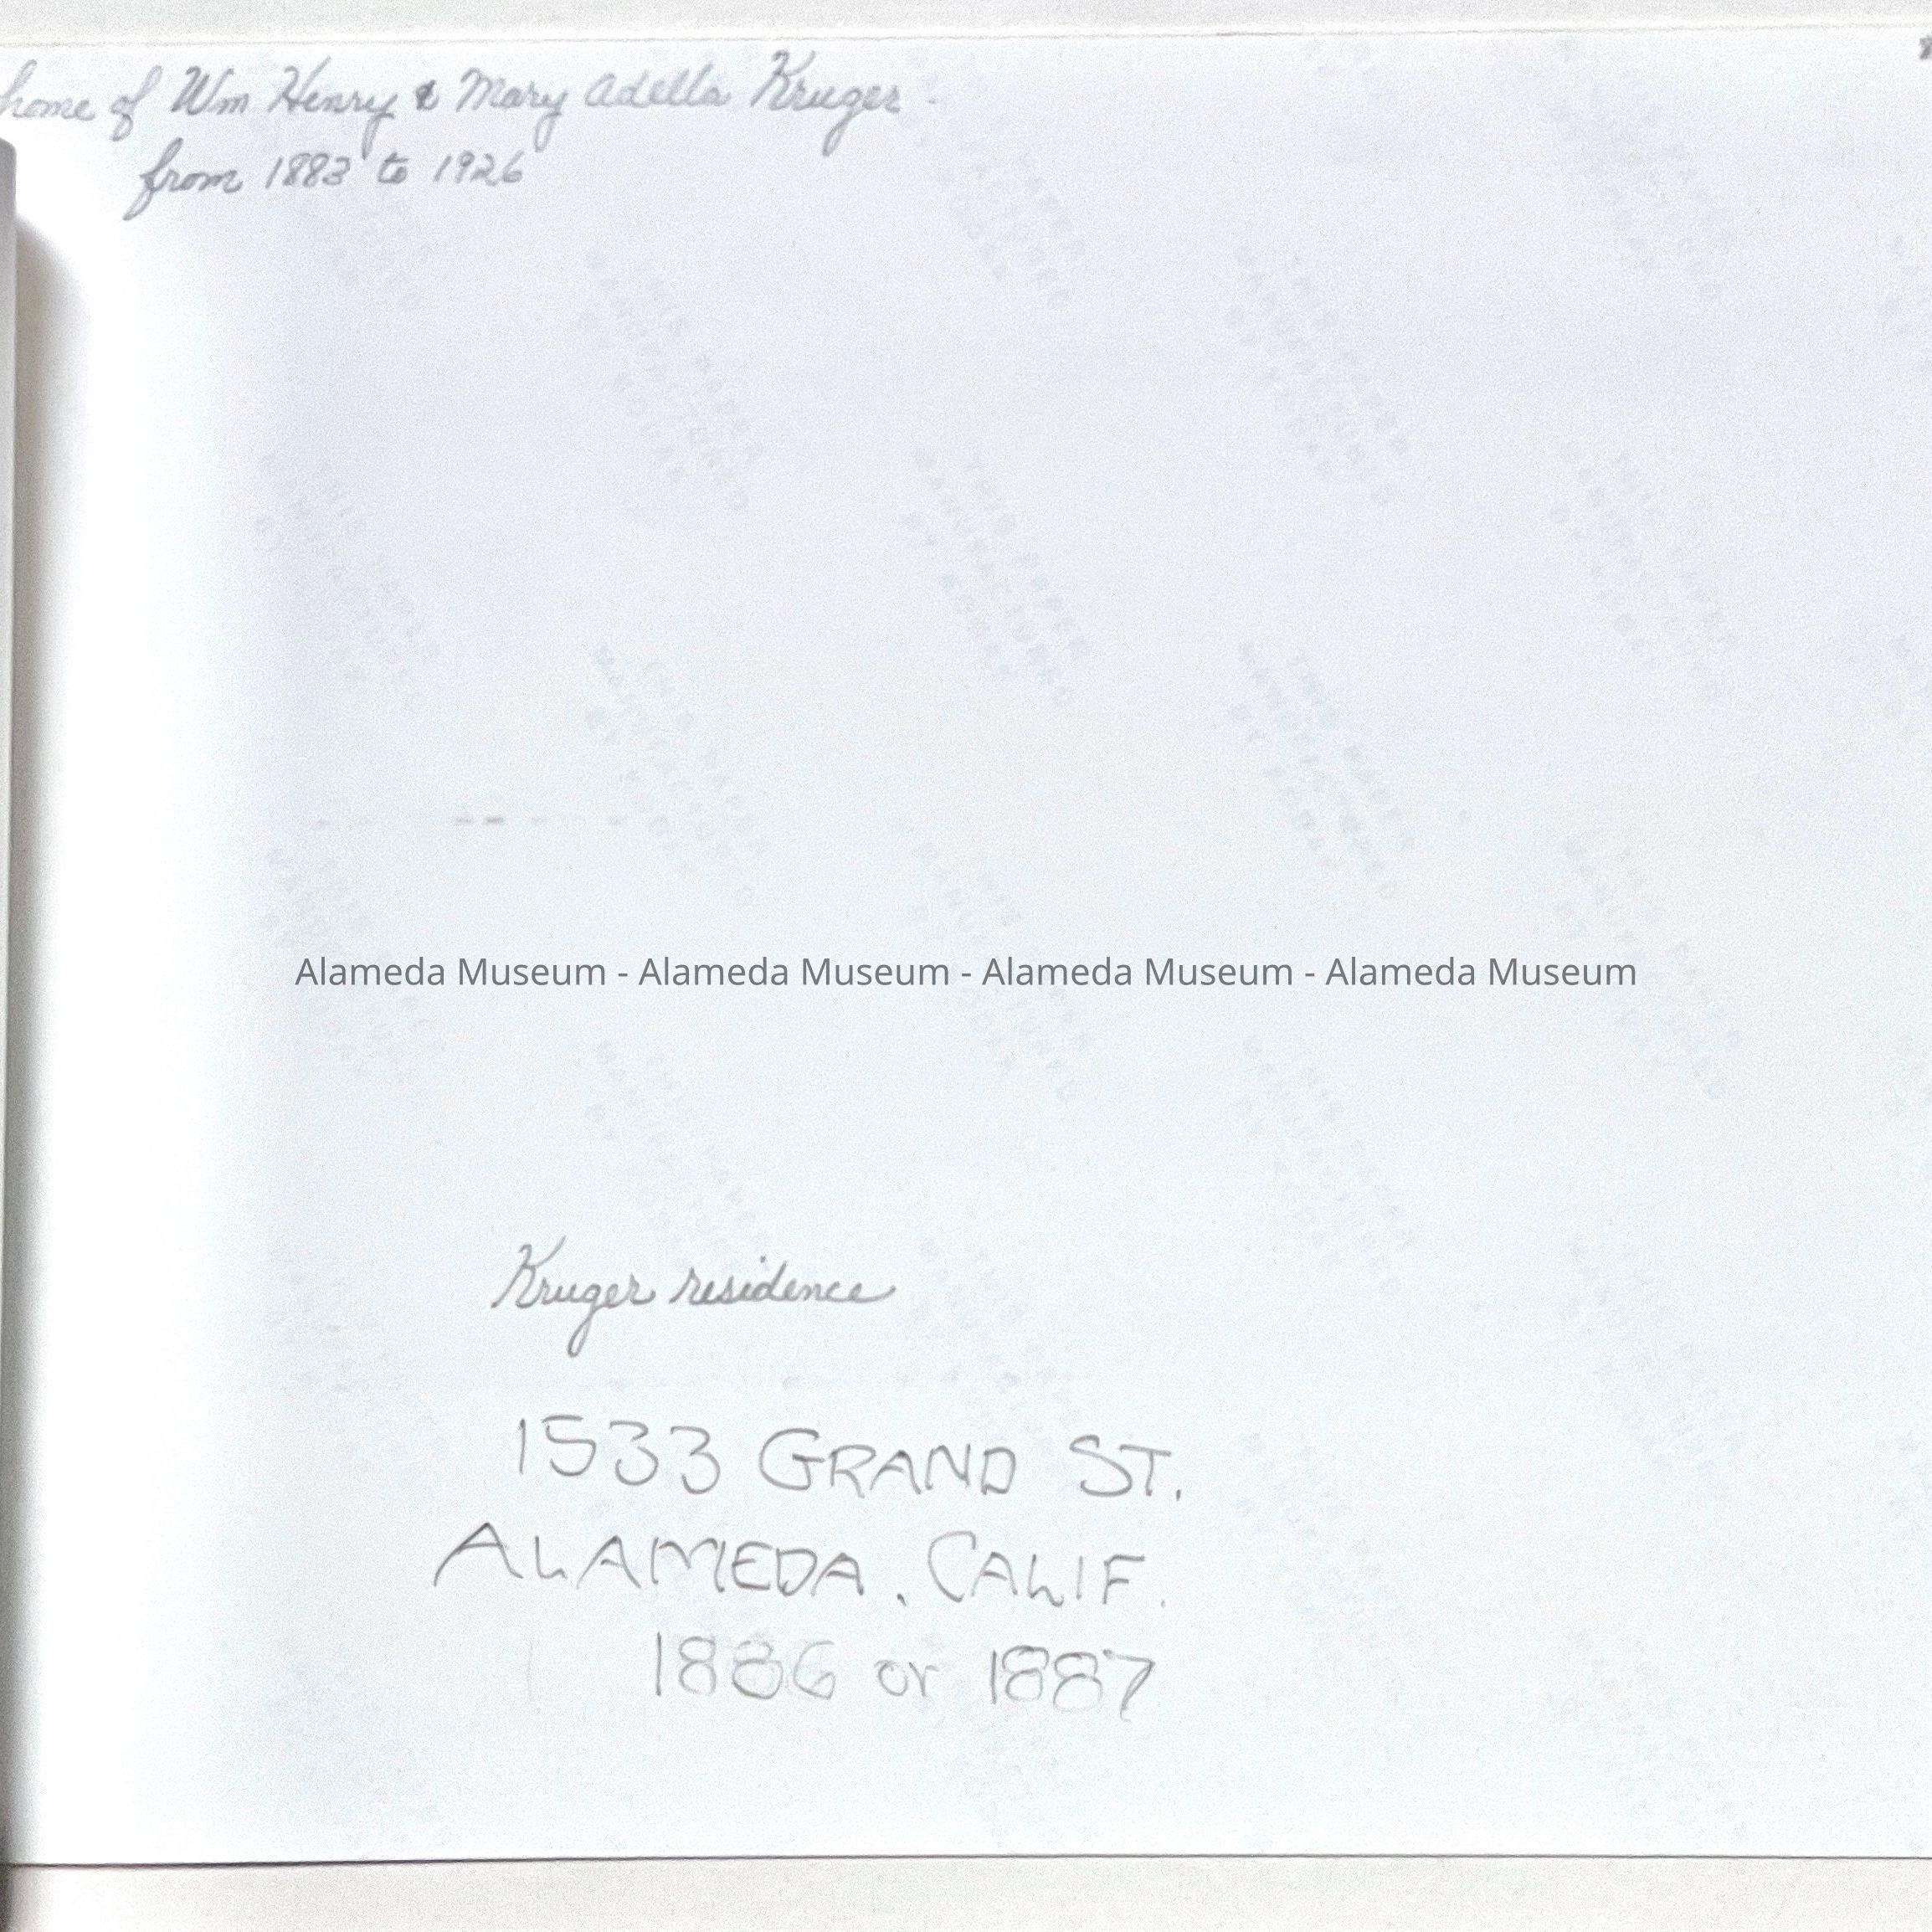 home of Wm Henry & Mary Adella Kruger -
from 1883 to 1926
Alameda Museum - Alameda Museum - Alameda Museum - Alameda Museum
Kruger residence
1533 GRAND ST.
ALAMEDA, CALIF.
1886 or 1887